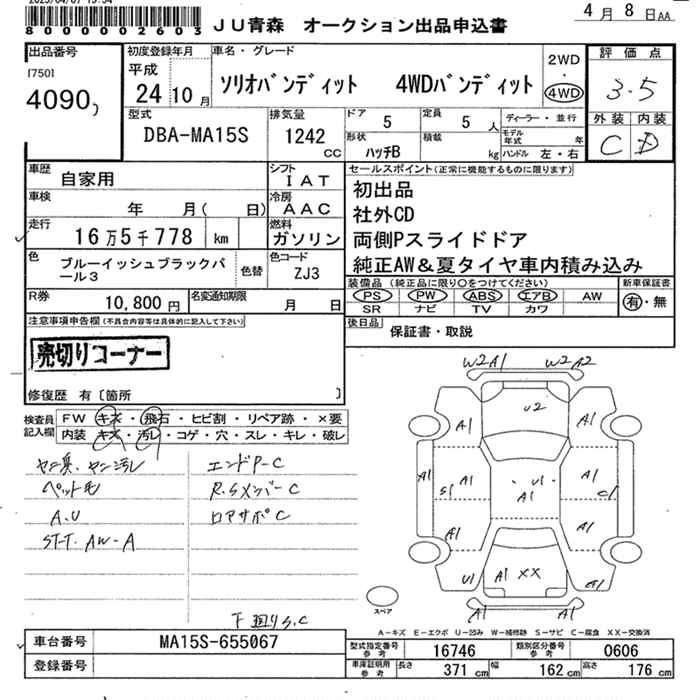 8000002603
JU青森 オークション出品申込書
4月8日AA
出品番号
[750]
4090
初度登録年月
平成
24 10月
車名・グレード
ソリオバンディット 4WDバンディット
2WD
・
4WD
評価点
3.5
外装 内装
C D
型式
DBA-MA15S
排気量
1242
CC
ドア
5
定員
5人
形状
ハッチB
積載
kg
ディーラー・並行
モデル年式 年
ハンドル 左・右
車歴
自家用
シフト
IAT
車検
年 月( 日)
冷房
AAC
走行
16万5千778 km
燃料
ガソリン
色
ブルーイッシュブラックパール3
色替
色コード
ZJ3
R券
10,800円
名変通知期限
月 日
セールスポイント(正常に機能するものに限ります)
初出品
社外CD
両側Pスライドドア
純正AW&夏タイヤ車内積み込み
装備品(純正品に限り○をつけてください)
PS PW ABS エアB AW
SR ナビ TV カワ
新車保証書
有・無
後日品
保証書・取説
注意事項申告欄(不具合内容等は具体的に記入して下さい)
売切りコーナー
修復歴 有〔箇所 〕
検査員記入欄
FW キズ・飛石・ヒビ割・リペア跡・×要
内装 キズ・汚レ・コゲ・穴・スレ・キレ・破レ
ペット毛
A.U
ST-T. AW-A
エンドP-C
R.Sメンバー C
ロアサポ C
下廻りS.C
W2 A1 W2 A2
A1 U2 A1
A1 S1 A1 U1 A1 A1 C1 A1
A1 A1
U1 A1 XX
A1 A1
スペア
A-キズ E-エクボ U-凹み W-補修跡 S-サビ C-腐食 XX-交換済
車台番号
MA15S-655067
登録番号
型式指定番号
参考
16746
類別区分番号
参考
0606
車庫証明用
参考
長さ
371 cm
幅
162 cm
高さ
176 cm